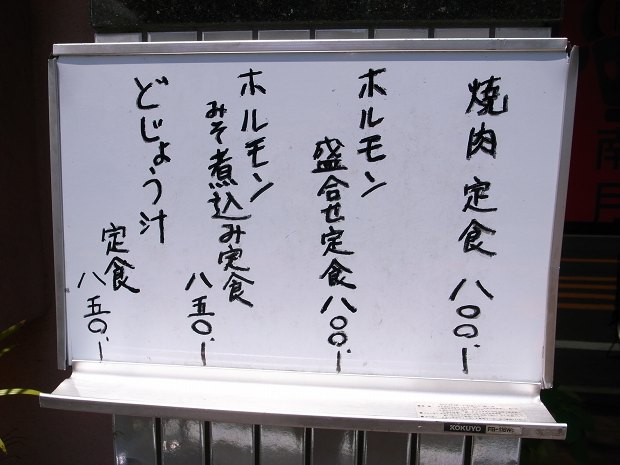 焼肉定食 八〇〇.-
ホルモン
盛合せ定食 八〇〇.-
ホルモン
みそ煮込み定食 八五〇.-
どじょう汁
定食 八五〇.-
KOKUYO FB-116Wc